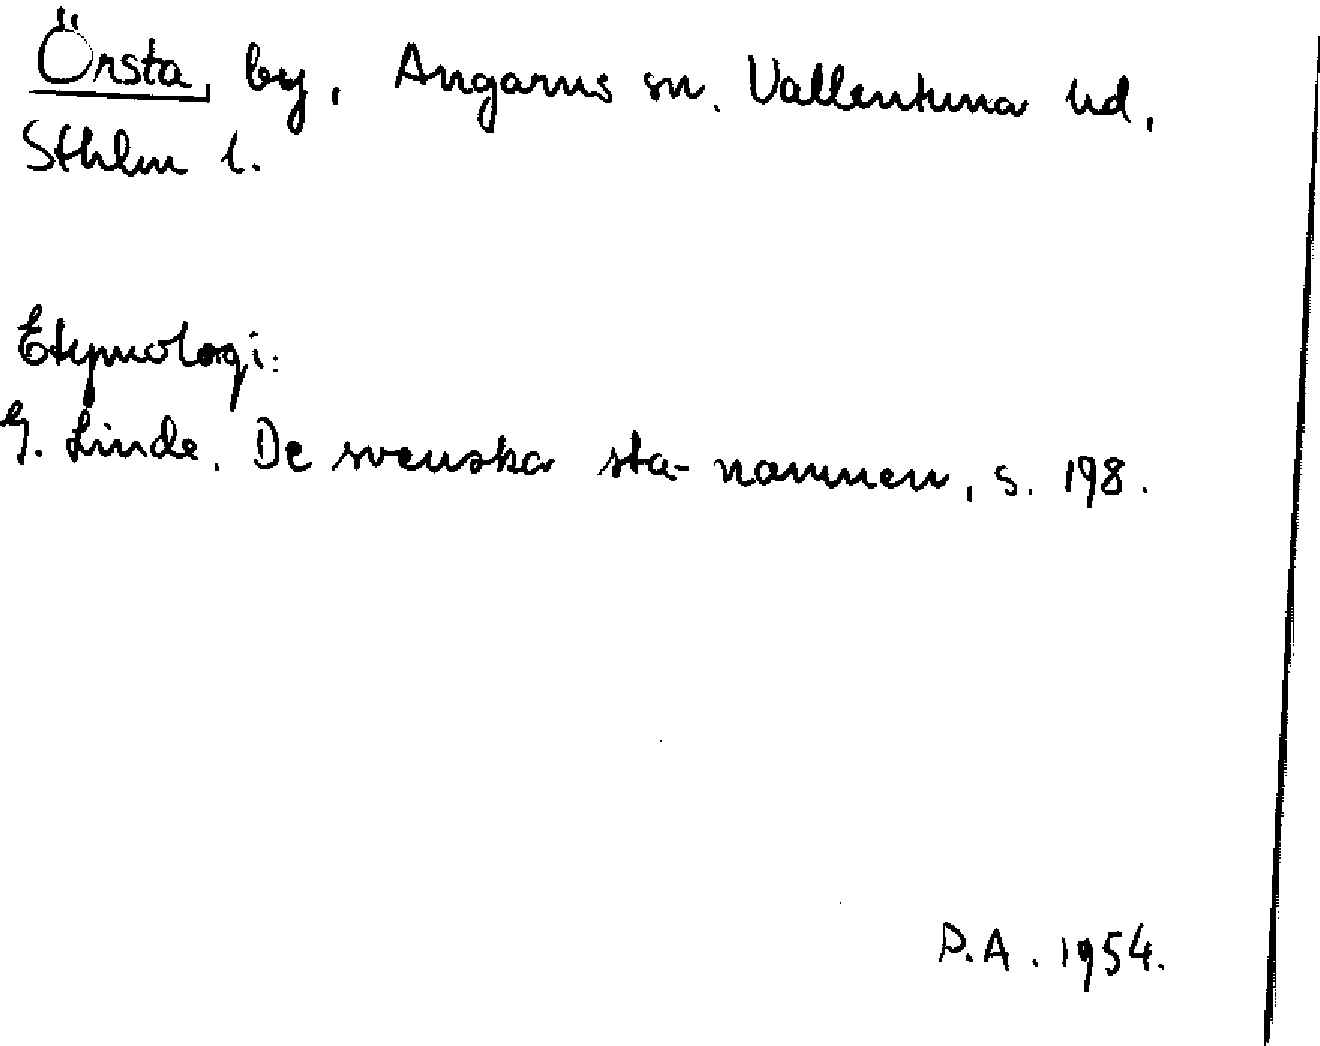 Örsta, by, Angarns sn. Vallentuna hd,
Sthlm l.
Etymologi:
G. Linde. De svenska sta-namnen, s. 198.
D.A. 1954.